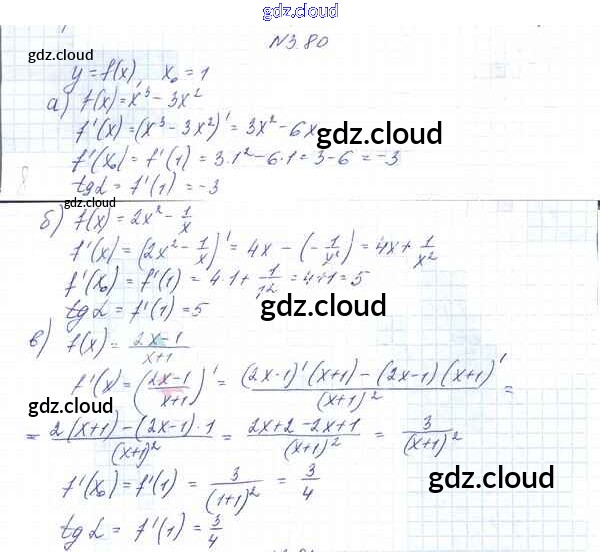 gdz.cloud
N3.80
gdz.cloud
y=f(x), x₀=1
а) f(x)=x³-3x²
f'(x)=(x³-3x²)'=3x²-6x
gdz.cloud
f'(x₀)=f'(1)=3·1²-6·1=3-6=-3
tgα=f'(1)=-3
gdz.cloud
б) f(x)=2x²-1/x
f'(x)=(2x²-1/x)'=4x-(-1/x²)=4x+1/x²
f'(x₀)=f'(1)=4·1+1/1²=4+1=5
gdz.cloud
tgα=f'(1)=5
в) f(x)=(2x-1)/(x+1)
f'(x)=((2x-1)/(x+1))'=((2x-1)'(x+1)-(2x-1)(x+1)')/(x+1)²=
gdz.cloud
=(2(x+1)-(2x-1)·1)/(x+1)²=(2x+2-2x+1)/(x+1)²=3/(x+1)²
f'(x₀)=f'(1)=3/(1+1)²=3/4
gdz.cloud
tgα=f'(1)=3/4